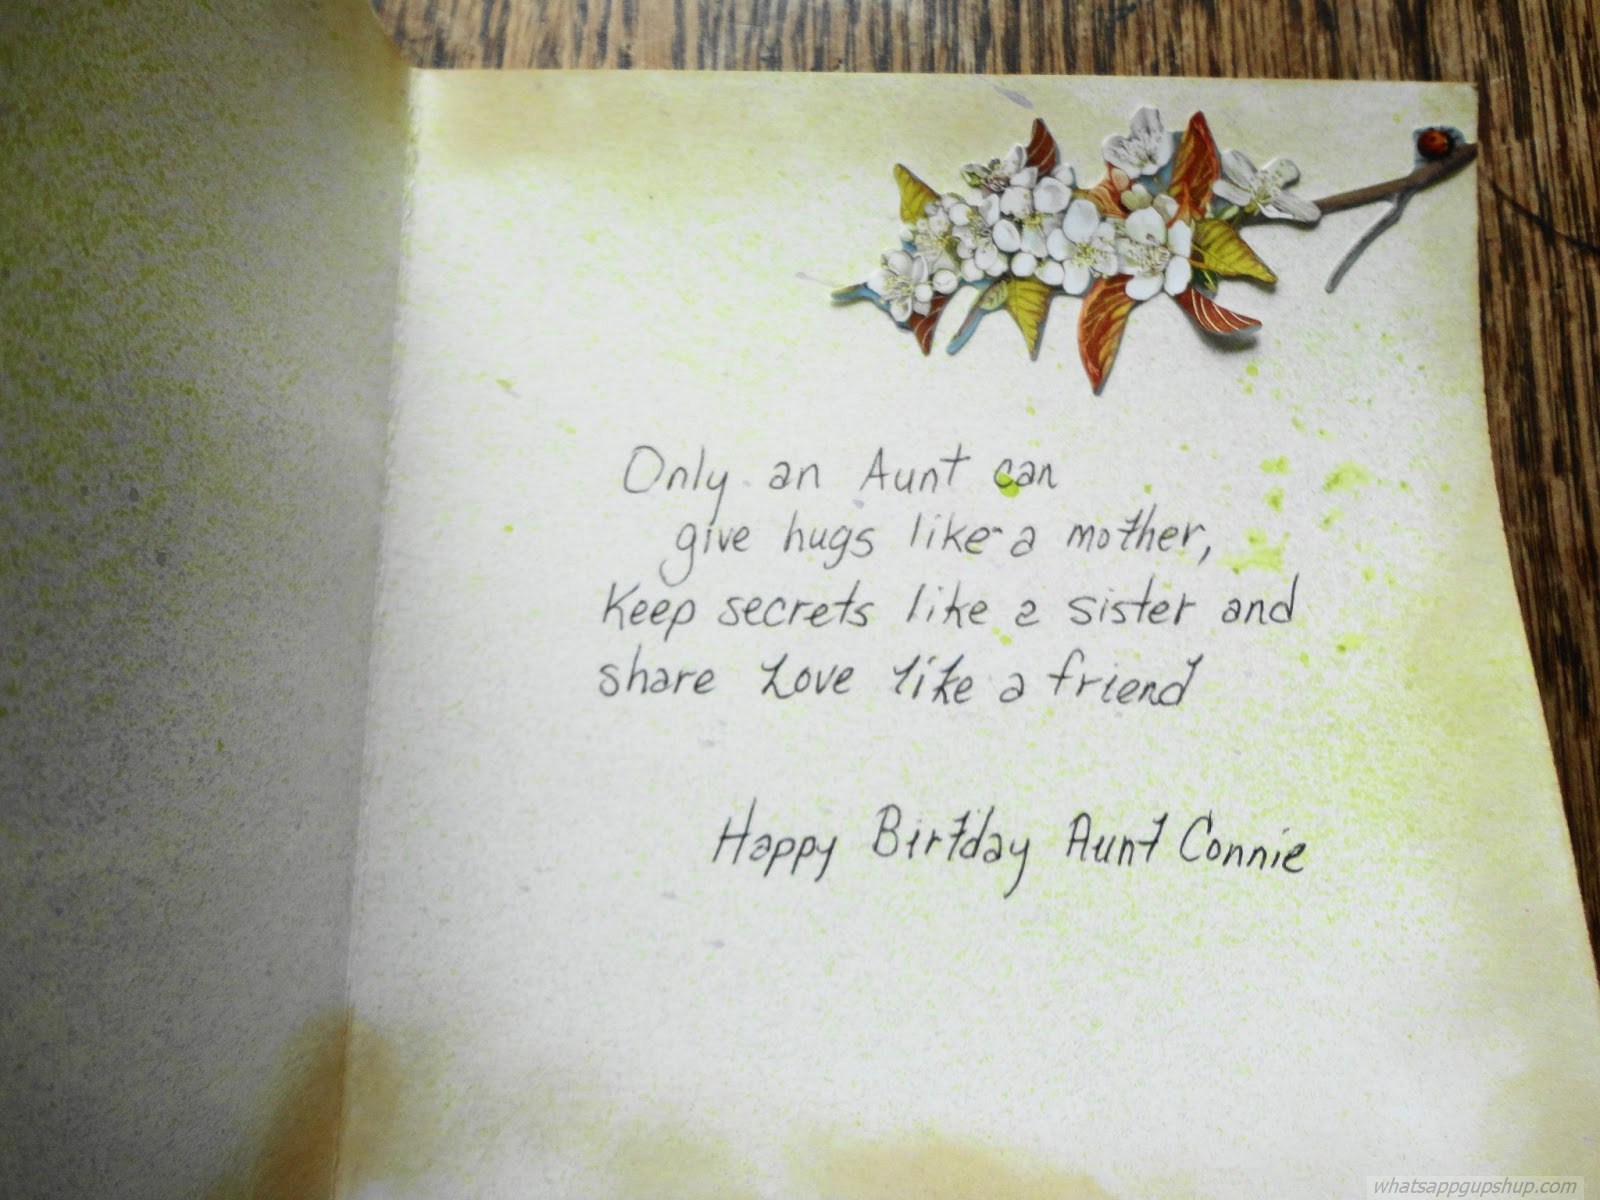 Only an Aunt can
give hugs like a mother,
Keep secrets like a sister and
share Love like a friend
Happy Birtday Aunt Connie
whatsappgupshup.com